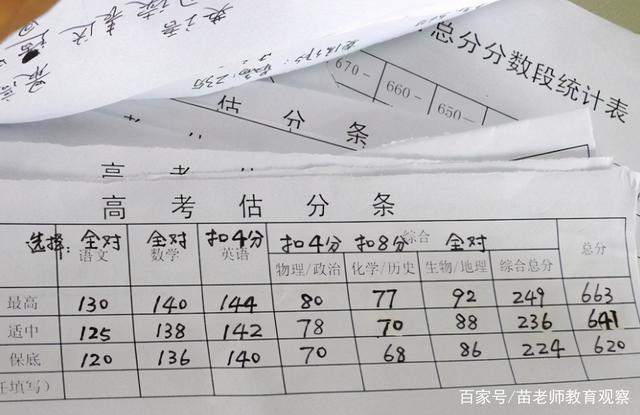 总分分数段统计表
670－
660－
650－
估 分 条
高 考
高 考 估 分 条
选择: 全对 全对 扣4分 扣4分 扣8分 全对
语文 数学 英语 综合 总分
物理/政治 化学/历史 生物/地理 综合总分
最高 130 140 144 80 77 92 249 663
适中 125 138 142 78 70 88 236 641
保底 120 136 140 70 68 86 224 620
填写）
百家号/苗老师教育观察